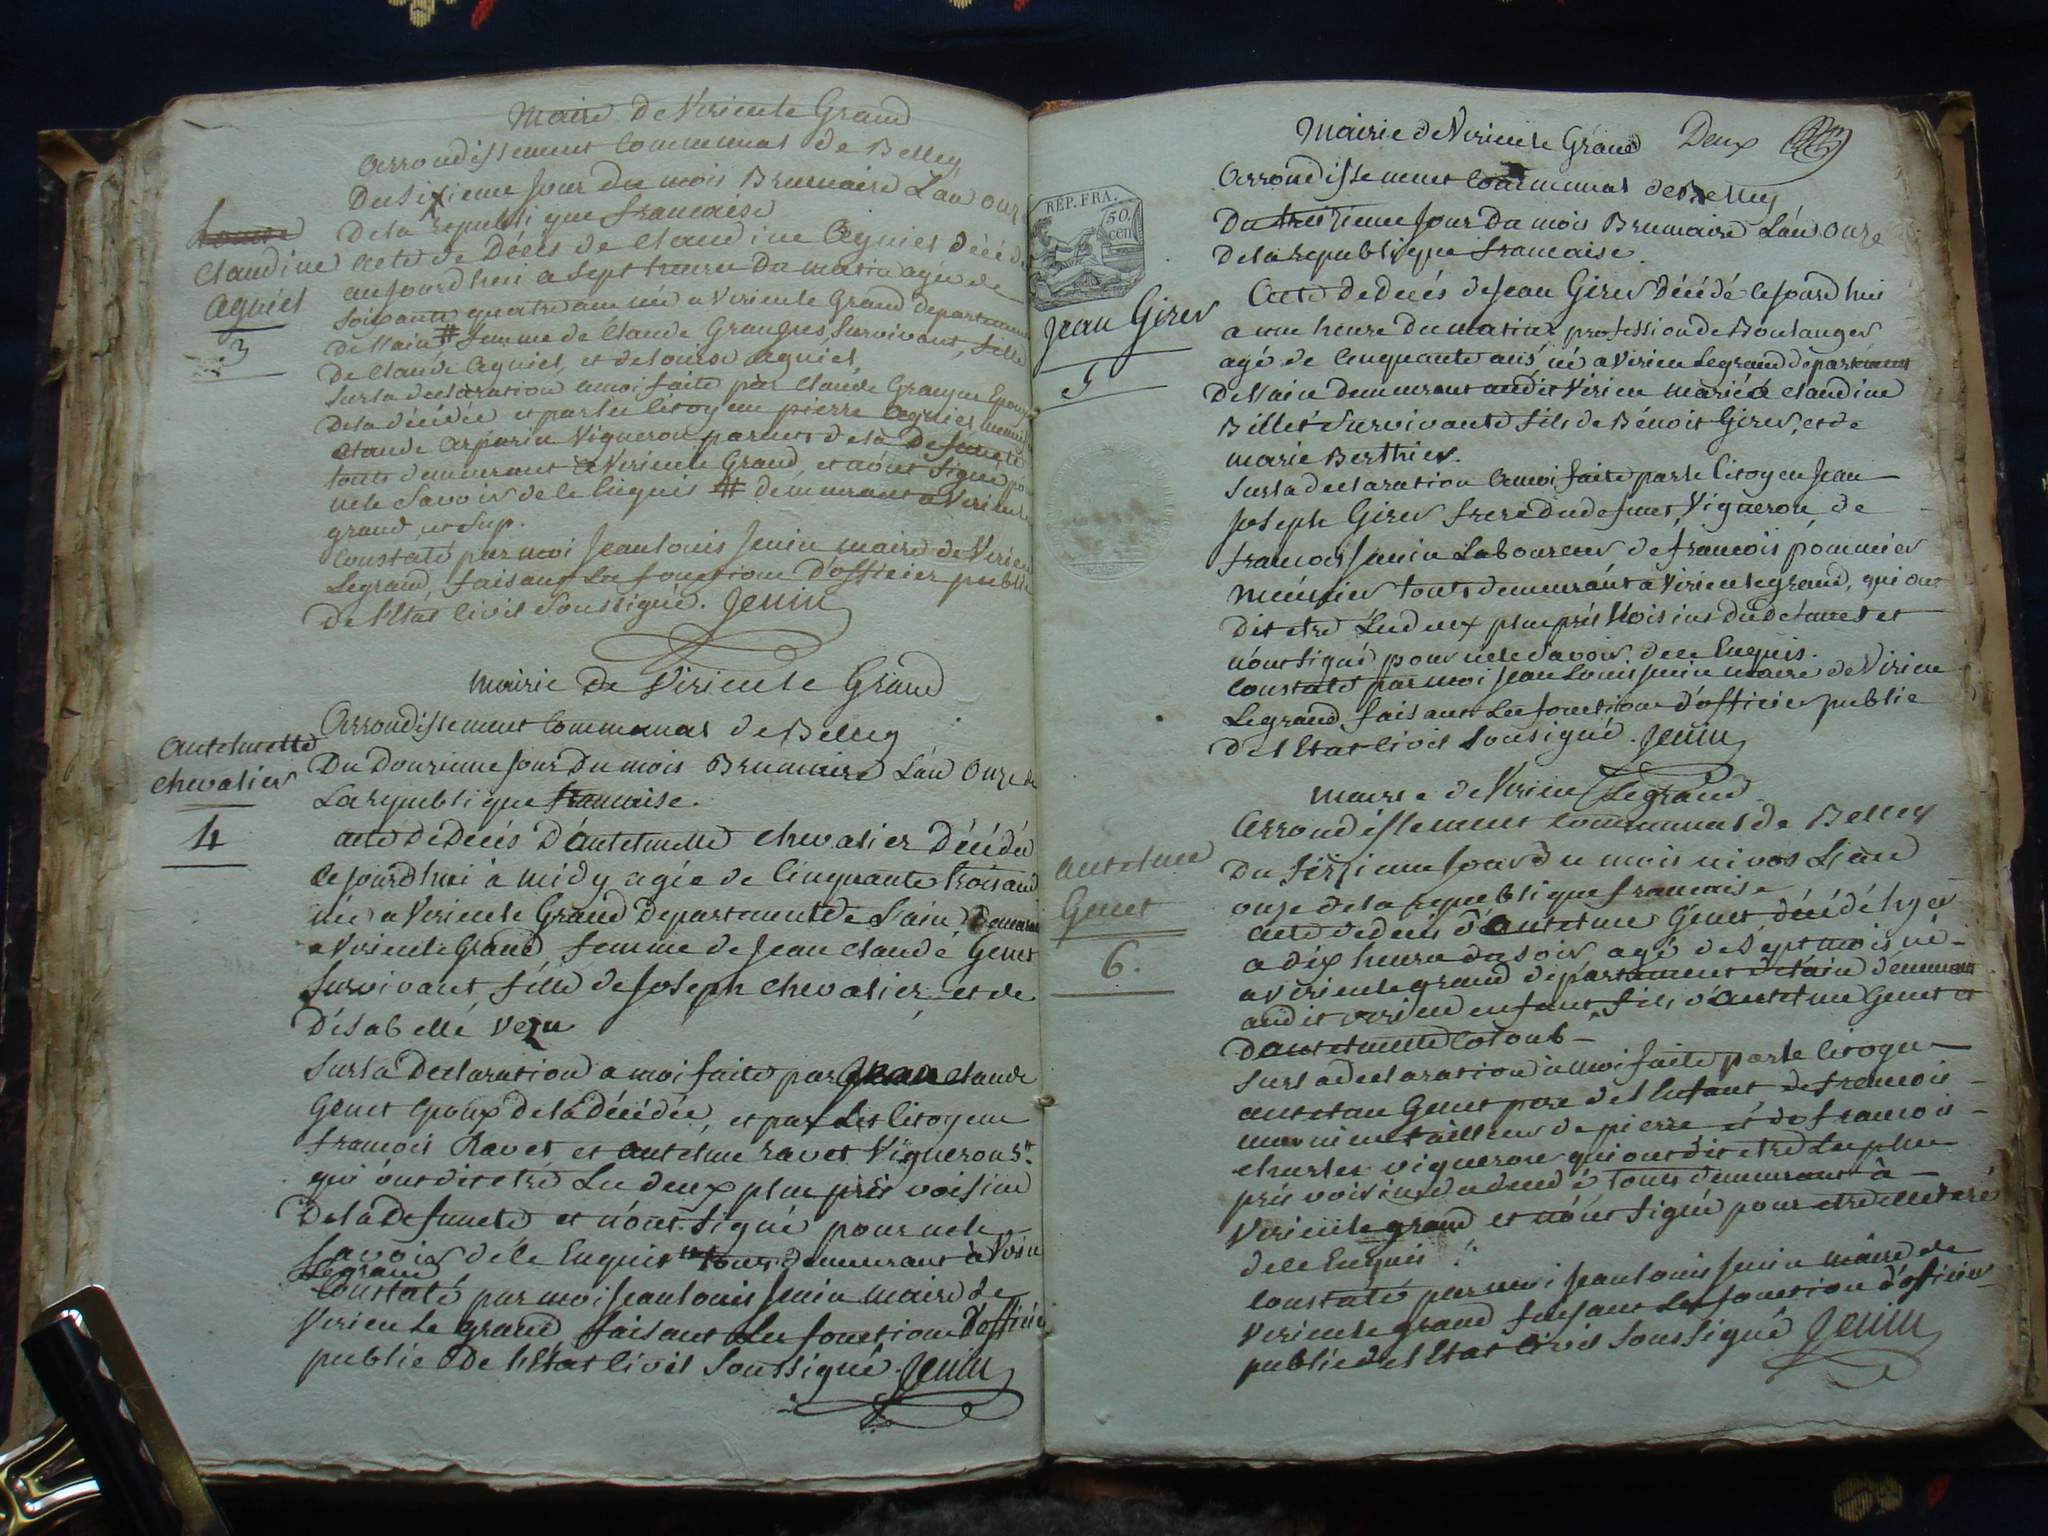 Mairie de Virieu le Grand
Arrondissement Communal de Belley
Du Sixieme Jour du mois Brumaire L'an onze
De la republique francaise
Claudine
Agniel
3
acte de Décès de Claudine Agniel décédée
aujourdhui a sept heures du matin agée de
soixante quatre ans née a Virieu le Grand departement
De l'ain # femme de Claude Granges, Survivant, fille
De Claude Agniel, et de louise Agniel
Sur la declaration a moi faite par Claude Granges Epoux
De la décédée et par les Citoyens pierre Agniel
Claude Carparin Vigneron parents de la Defuncte
touts demeurant a Virieu le Grand, et n'ont Signé pour
ne le Savoir de le Enquis # demeurant a Virieu le
grand
Constaté par moi Jean louis Jenin maire de Virieu
Legrand, faisant Les fonctions D'officier public
De l'Etat Civil Soussigné. Jenin
Mairie de Virieu le Grand
Arrondissement Communal de Belley
Antelmette
Chevalier
4
Du Douzieme Jour Du mois Brumaire L'an Onze de
La republique francaise.
acte de Décès D'Antelmette Chevalier Décédée
Cejourdhui à midy agée de Cinquante trois ans
née a Virieu le Grand Departement de L'ain, Demeurant
a Virieu le Grand, femme de Jean Claude Genet
Survivant, fille de Joseph Chevalier et de
D'isabelle
Sur la Declaration a moi faite par Jean Claude
Genet Epoux De la décédée, et par Les Citoyens
francois Ravet et antelme ravet Vignerons #
qui ont dit etre Les deux plus près voisins
De la Defuncte et n'ont Signé pour ne le
Savoir de le Enquis # touts demeurant à Virieu
Legrand
Constaté par moi Jean louis Jenin maire de
Virieu Le grand faisant Les fonctions D'officier
public de l'Etat Civil Soussigné. Jenin
Mairie de Virieu le Grand Deux
Arrondissement Communal de Belley
REP. FRA.
50.
cen
Du treizieme Jour Du mois Brumaire L'an Onze
De la republique francaise.
Jean Girer
5
Acte de Decès de Jean Girer Décédé Cejourdhui
a une heure du matin, profession de Boulanger
agé de Cinquante ans né a Virieu Legrand departement
De l'ain demeurant audit Virieu marié a Claudine
Billet Survivante fils de Bénoit Girer, et de
marie Berthier.
Sur la declaration a moi faite par le Citoyen Jean
Joseph Girer frere du defunt, Vigneron, de
francois Janin Laboureur de francois pommier
meunier touts demeurant a Virieu legrand, qui ont
dit etre Les deux plus près Voisins du defunct et
n'ont Signé pour ne le Savoir de le Enquis.
Constaté par moi Jean Louis Jenin maire de Virieu
Legrand faisant Les fonctions d'officier public
de l'Etat Civil Sousigné. Jenin
Mairie de Virieu Legrand
Arrondissement Communal de Belley
Du Seizieme Jour du mois nivos L'an
onze de la republique francaise
Antelme
Genet
6.
acte de decès d'Antelme Genet, décédé hyer
a dix heures du soir agé de Sept mois né
a Virieu le grand departement de l'ain demeurant
audit virieu enfant, fils d'Antelme Genet et
D'antelmette Coloub
Sur la declaration a moi faite par le Citoyen
antelme Genet pere de l'Enfant, de francois
tailleur de pierre et de francois
Charles vigneron qui ont dit etre Les plus
près voisins du decedé, touts demeurant à
Virieu le grand et n'ont Signé pour etre illeteré
de le Enquis
Constaté par moi Jean louis Jenin maire de
Virieu le grand faisant Les fonctions d'officier
public de l'Etat Civil Soussigné Jenin